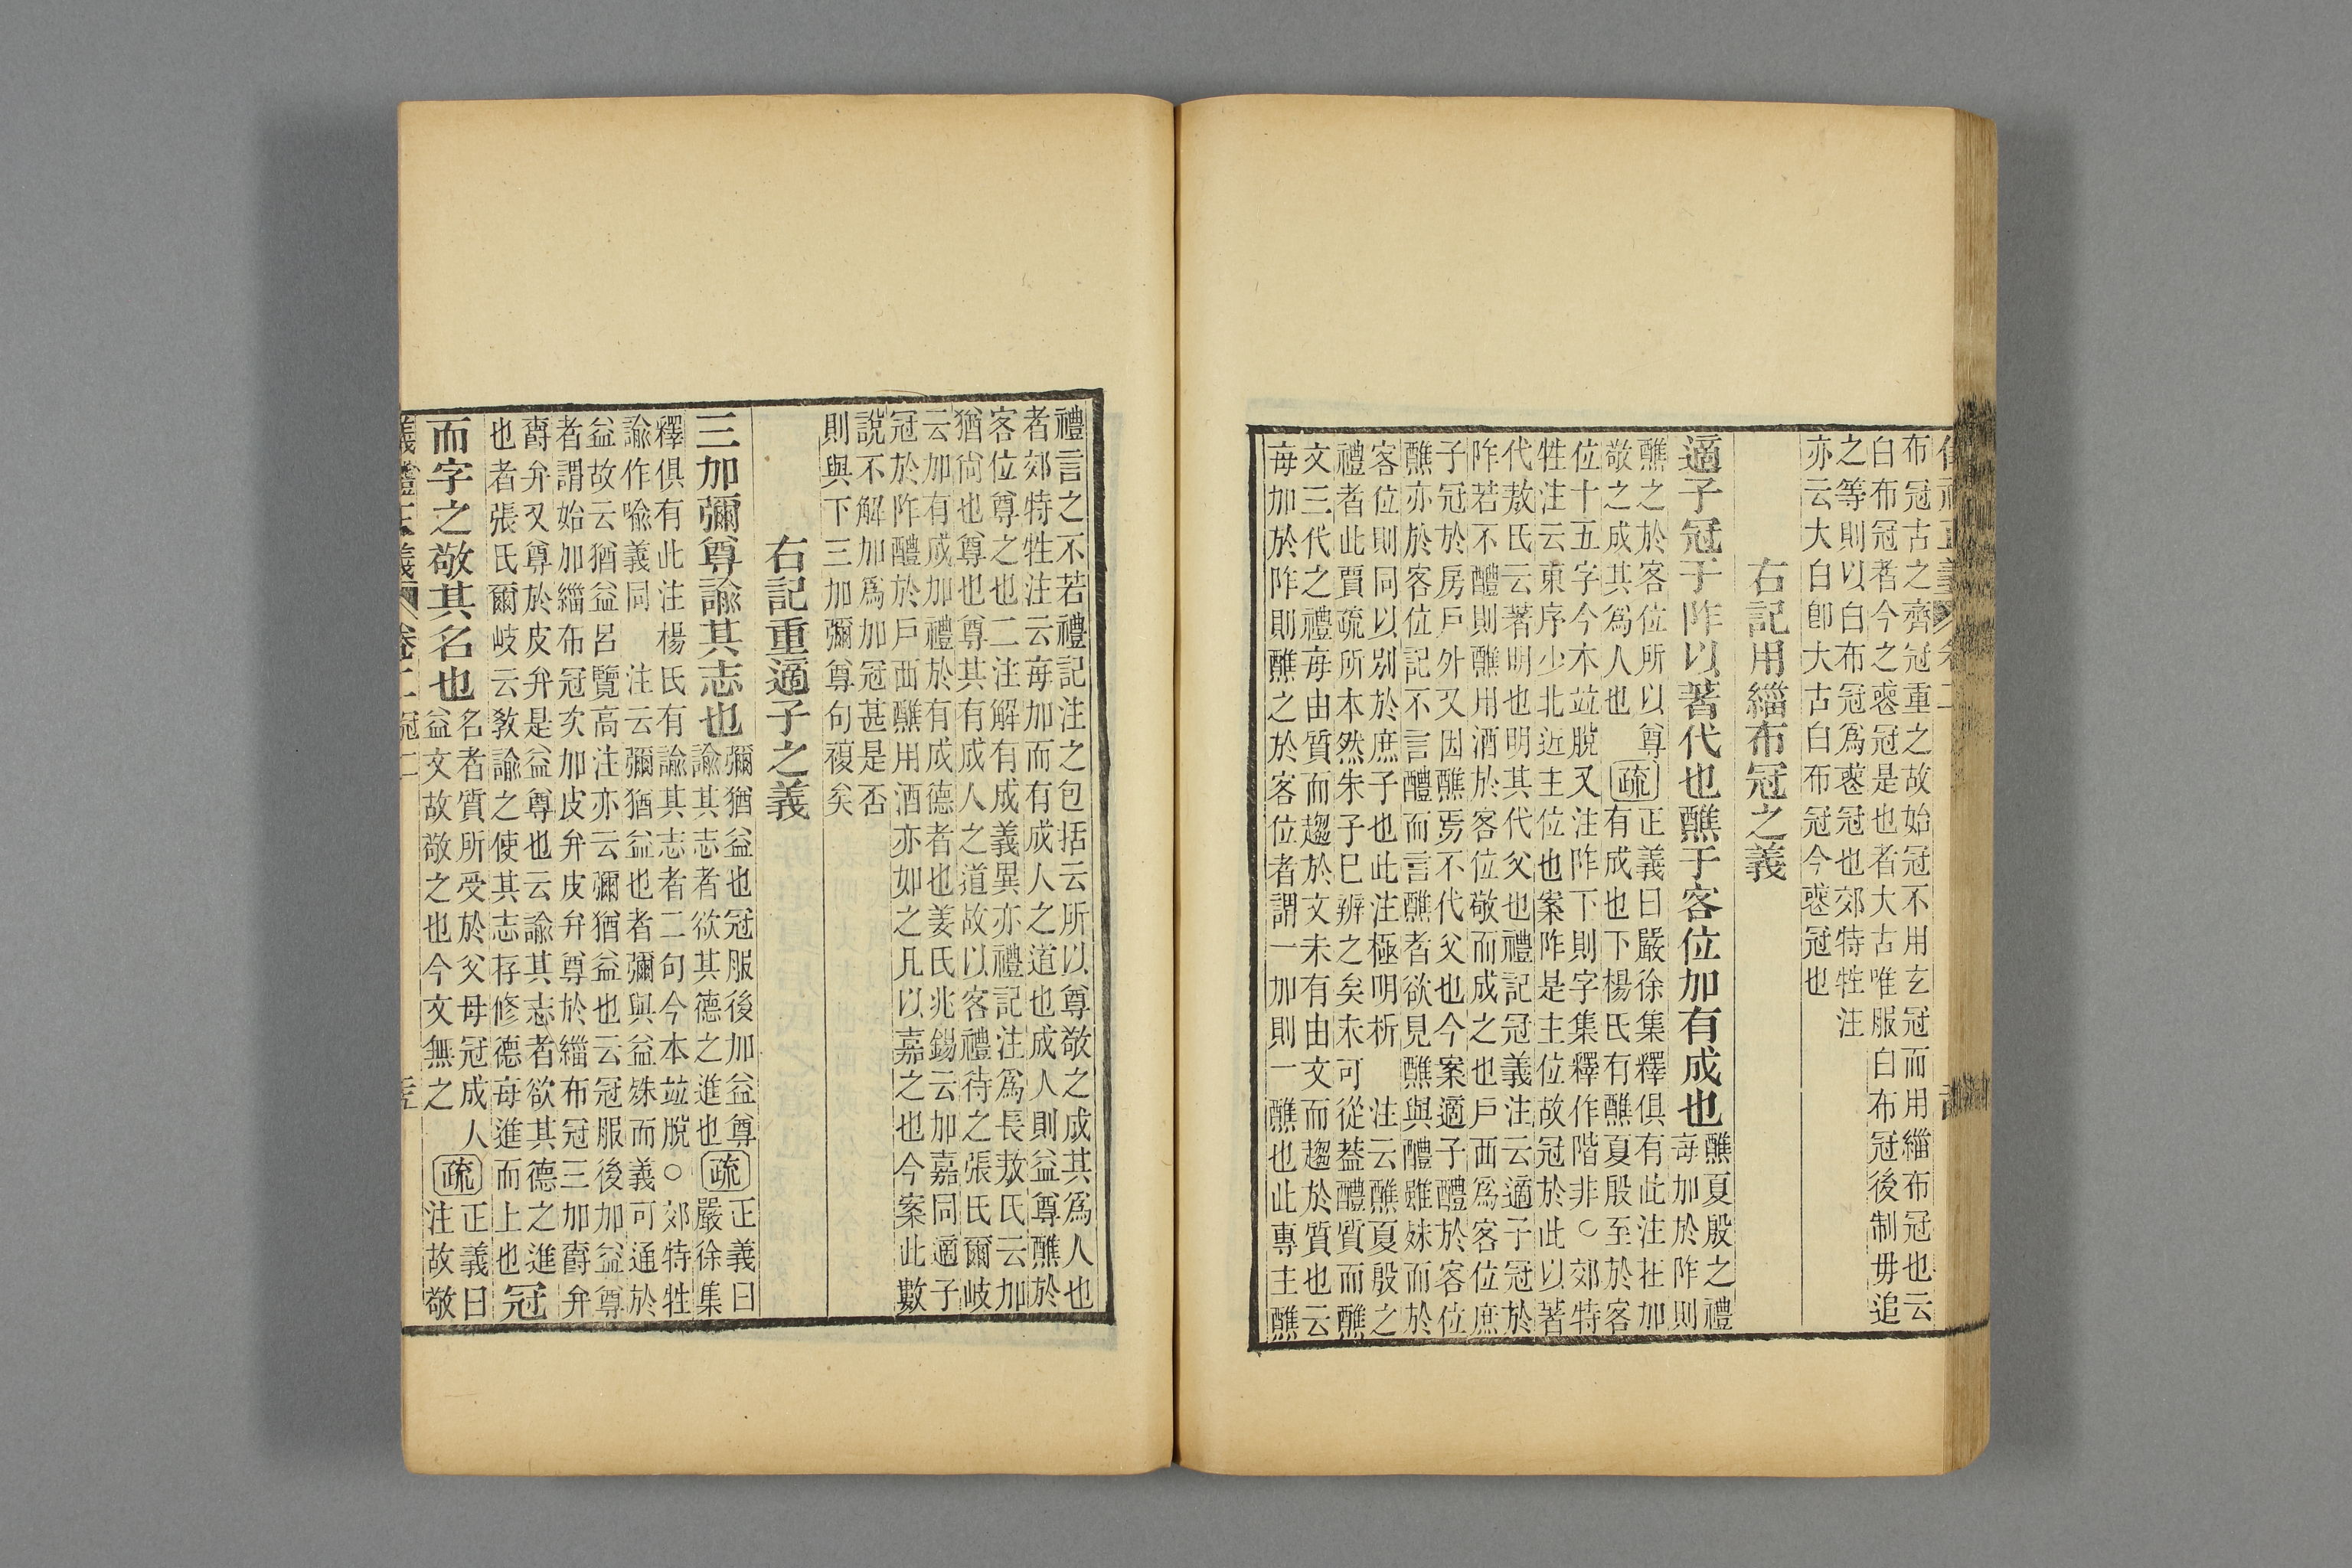 布冠古之齊冠重之故始冠不用玄冠而用緇布冠也云
白布冠者今之䘮冠是也者大古唯服白布冠後制毋追
之等則以白布冠爲䘮冠也郊特牲注
亦云大白卽大古白布冠今䘮冠也
右記用緇布冠之義
適子冠于阼以著代也醮于客位加有成也
醮夏殷之禮
每加於阼則
醮之於客位所以尊
敬之成其爲人也
疏
正義曰嚴徐集釋俱有此注祍加
有成也下楊氏有醮夏殷至於客
位十五字今本竝脫又注阼下則字集釋作階非○郊特
牲注云東序少北近主位也案阼是主位故冠於此以著
代敖氏云著明也明其代父也禮記冠義注云適子冠於
阼若不醴則醮用酒於客位敬而成之也戶西爲客位庶
子冠於房戶外又因醮焉不代父也今案適子醴於客位
醮亦於客位記不言醴而言醮者欲見醮與醴雖殊而於
客位則同以别於庶子也此注極明析 注云醮夏殷之
禮者此賈疏所本然朱子已辨之矣未可從葢醴質而醮
文三代之禮每由質而趨於文未有由文而趨於質也云
每加於阼則醮之於客位者謂一加則一醮也此專主醮
禮言之不若禮記注之包括云所以尊敬之成其爲人也
者郊特牲注云每加而有成人之道也成人則益尊醮於
客位尊之也二注解有成義異亦禮記注爲長敖氏云加
猶尙也尊也尊其有成人之道故以客禮待之張氏爾岐
云加有成加禮於有成德者也姜氏兆錫云加嘉同適子
冠於阼醴於戶西醮用酒亦如之凡以嘉之也今案此數
說不解加爲加冠甚是否
則與下三加彌尊句複矣
右記重適子之義
三加彌尊諭其志也
彌猶益也冠服後加益尊
諭其志者欲其德之進也
疏
正義曰
嚴徐集
釋俱有此注楊氏有諭其志者二句今本竝脫○郊特牲
諭作喩義同 注云彌猶益也者彌與益殊而義可通於
益故云猶益呂覽高注亦云彌猶益也云冠服後加益尊
者謂始加緇布冠次加皮弁皮弁尊於緇布冠三加爵弁
爵弁又尊於皮弁是益尊也云諭其志者欲其德之進
也者張氏爾岐云敎諭之使其志存修德每進而上也
冠
而字之敬其名也
名者質所受於父母冠成人
益文故敬之也今文無之
疏
正義曰
注故敬